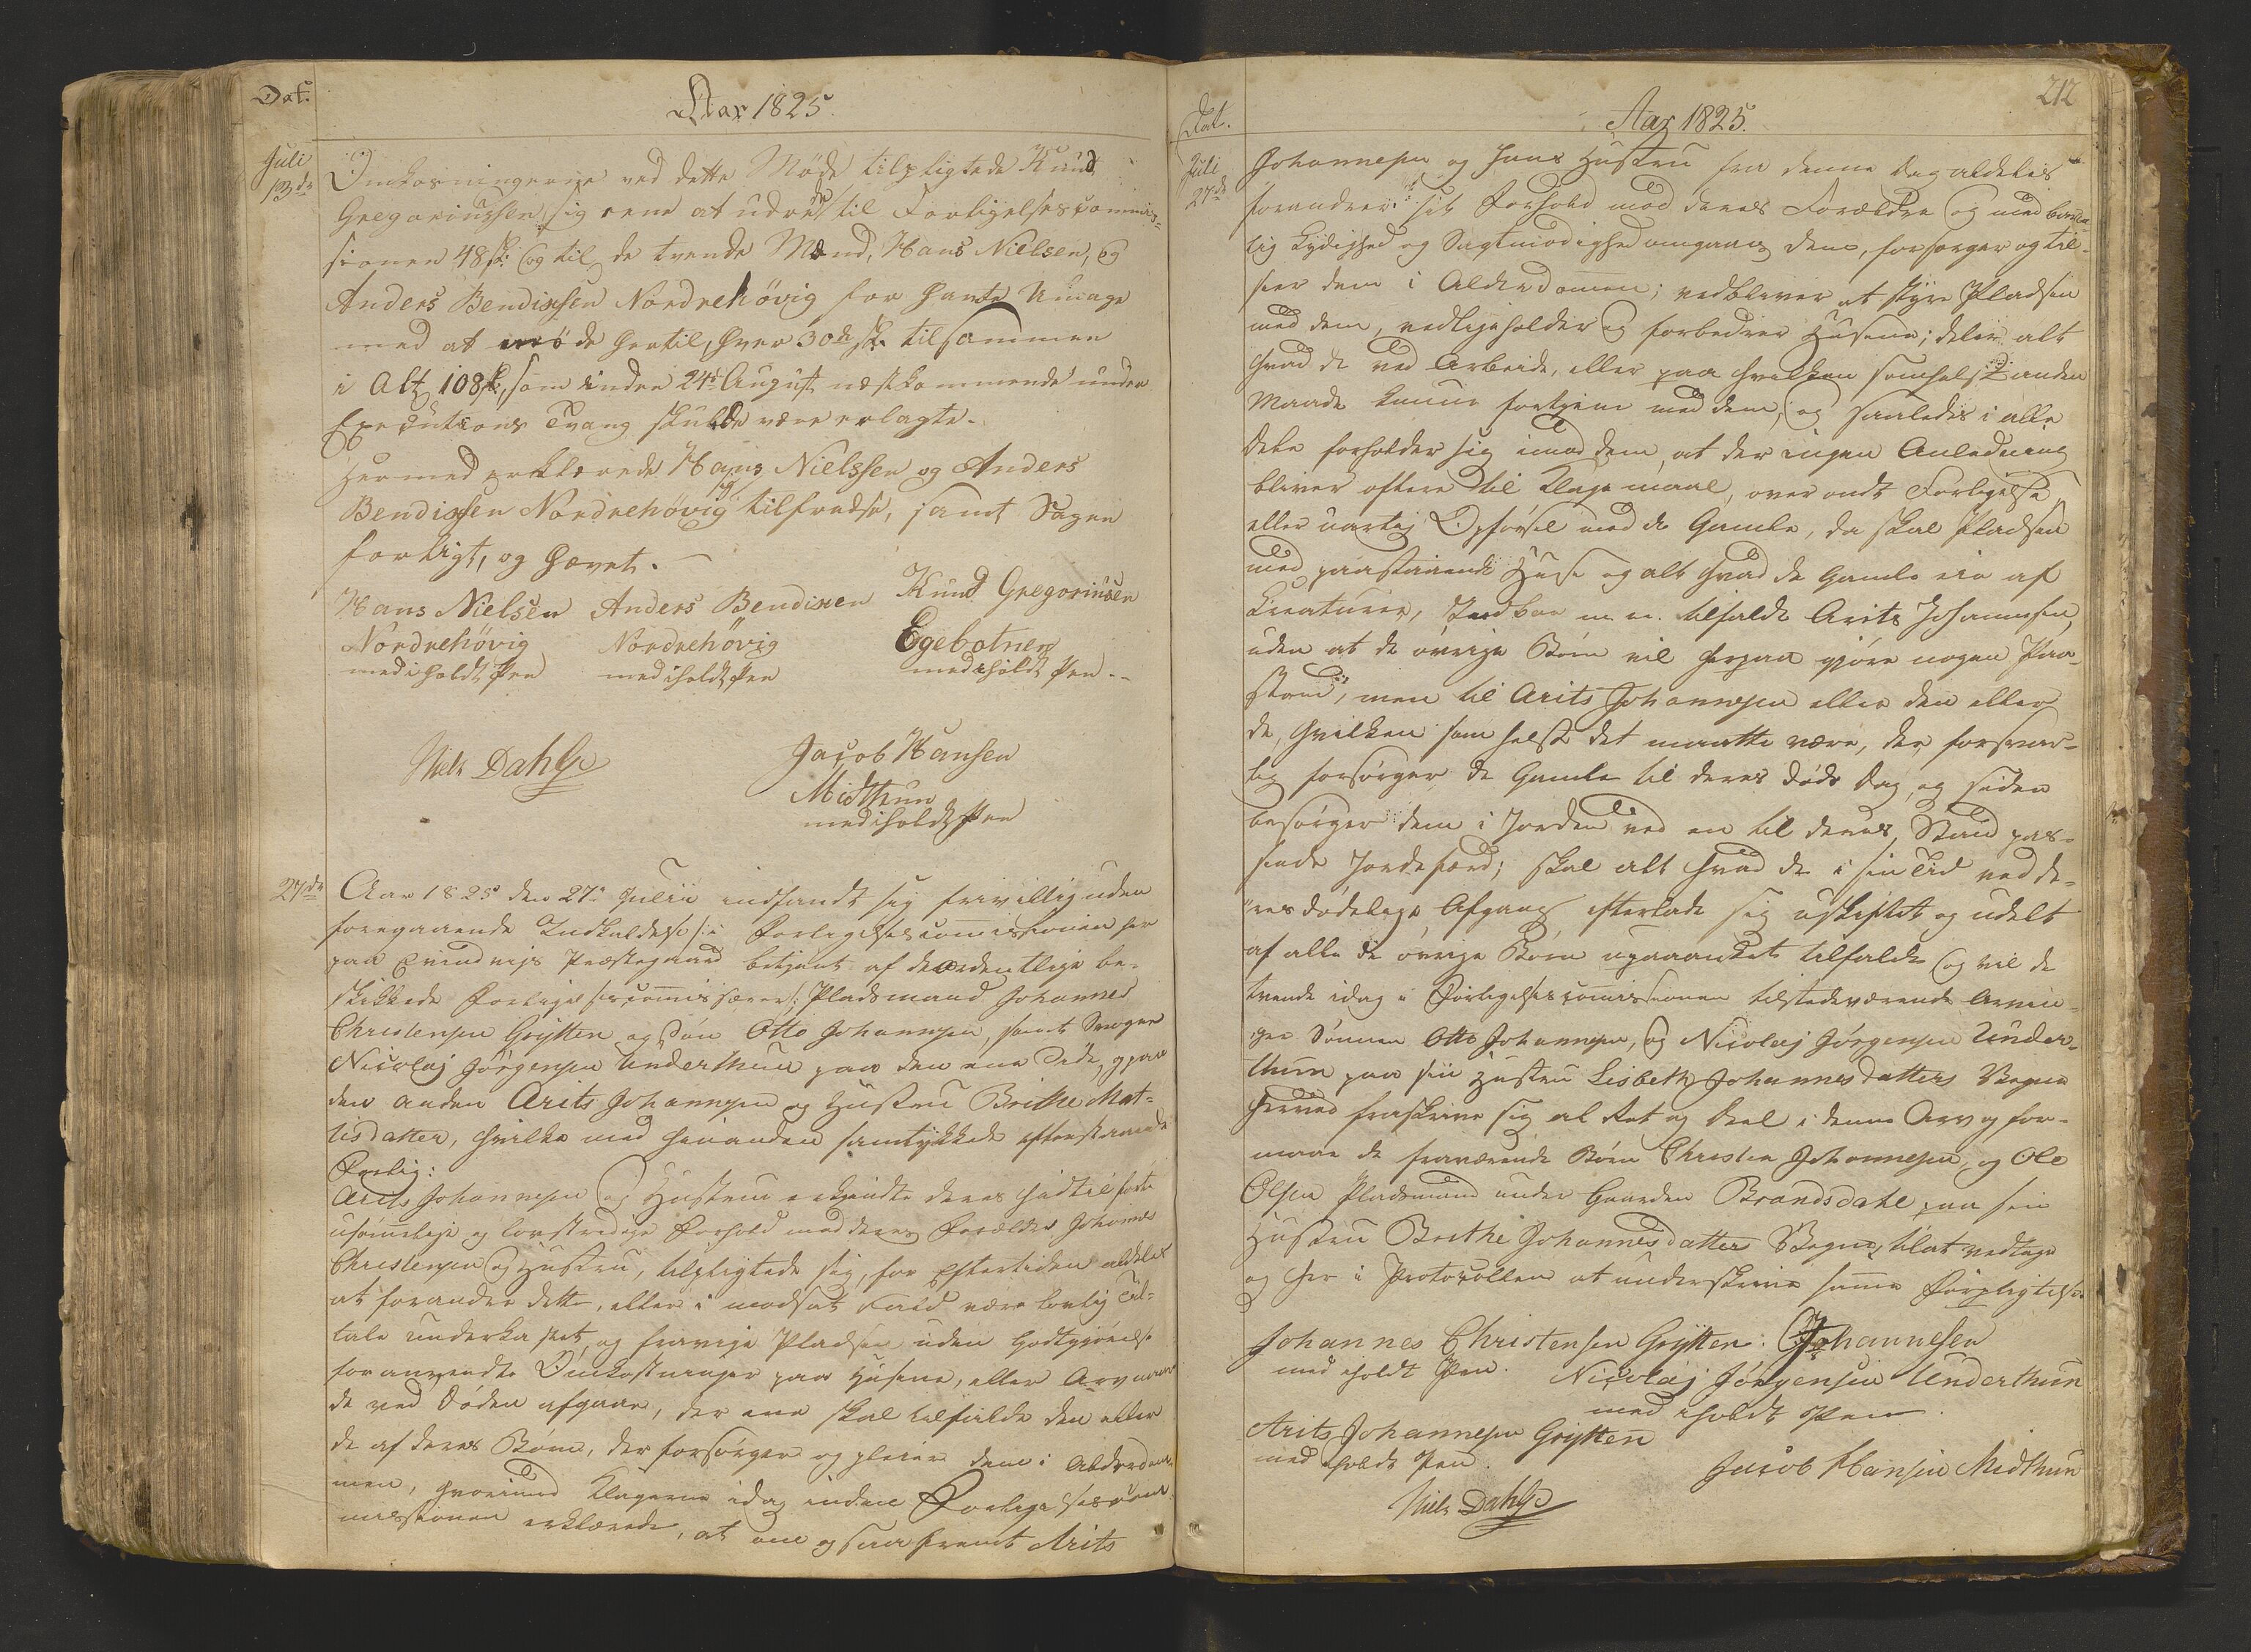 Dat.
Aar 1825.
Juli
13de
Omkosningerne ved dette Møde tilpligtede Knud
Gregoriussen sig ene at udrede til Forligelsescommis-
sionen 48 sk: og til de tvende Mænd, Hans Nielsen, og
Anders Bendixsen Nordrehövig for havte Umage
med at möde hertil, hver 30 sk. tilsammen
i Alt 108 sk, som inden 24de August næstkommende under
Executions Tvang skulde være erlagte.
Hermed erklærede Hans Nielssen og Anders
Bendixsen Nordrehövig sig tilfredse, samt Sagen
forligt, og hævet.
Hans Nielsen Anders Bendixen Knud Gregoriusen
Nordrehövig Nordrehövig Egebotnen
med iholdt Pen med iholdt Pen med iholdt Pen
Niels Dahl Jacob Hansen
Midthun
med iholdt Pen
27de
Aar 1825 den 27de Julii indfandt sig frivillig uden
foregaaende Indkaldelse i Forligelsescommissionen her
paa Evindvigs Præstegaard betjent af de ordentlige be-
skikkede Forligelsescommissærer: Pladsmand Johannes
Christensen Grytten og Søn Otto Johannesen, samt Svoger
Nicolaj Jörgensen Underthun paa den ene Side, og paa
den anden Arits Johannesen og Hustru Brithe Mat-
hisdatter, hvilke med hinanden samtykkede efterstaaende
Forlig:
Arits Johannesen og Hustru erkjendte deres hidtil førte
usömmelige og lovstridige Forhold mod deres Forældre Johannes
Christensen og Hustru, tilpligtede sig, for Eftertiden aldeles
at forandre dette, eller i modsat Fald være lovlig Til-
tale underkastet, og fravige Pladsen uden Godtgjörelse
for anvendte Omkostninger paa Husene, eller Arv naar
de ved Döden afgaar, der ene skal tilfalde den eller
de af deres Börn, der forsörger og pleier dem i Alderdom-
men, hvorimod Klagerne idag inden Forligelsescom-
missionen erklærede, at om og saafremt Arits
Dat.
Aar 1825.
212
Juli
27de
Johannesen og hans Hustru fra denne Dag aldeles
forandrer sit Forhold mod deres Forældre og med börn-
lig Lydighed og Sagtmodighed omgaaes dem, forsörger og til-
seer dem i Alderdommen; vedbliver at styre Pladsen
med dem, vedligeholder og forbedrer Husene; deler alt
hvad de ved Arbeide, eller paa hvilken somhelst anden
Maade kunne fortjene med dem, og saaledes i alle
Dele forholder sig imod dem, at der ingen Anledning
bliver oftere til Klagemaal, over ondt Forligelse
eller uartig Opførsel mod de Gamle, da skal Pladsen
med paastaaende Huse og alt hvad de Gamle eie af
Creaturer, Indboe m. m. tilfalde Arits Johannesen,
uden at de övrige Börn vil herpaa gjöre nogen Paa-
stand, men til Arits Johannesen eller den eller
de, hvilken som helst det maatte være, der forsvar-
lig forsörger de Gamle til deres Döds Dag, og siden
besörger dem i Jorden ved en til deres Stand pas-
sende Jordefærd; skal alt hvad de i sin Tid ved de-
res dödelige Afgang efterlade sig uskiftet og udelt
af alle de övrige Börn upaaanket tilfalde og vil de
tvende idag i Forligelsescommissionen tilstedeværende Arvin-
ger Sönnen Otto Johannesen, og Nicolaj Jörgensen Under-
thun paa sin Hustru Lisbeth Johannesdatters Vegne
herved fraskrive sig al Ret og Deel i denne Arv og for-
maae de fraværende Börn Christen Johannesen, og Ole
Olsen Pladsmand under Gaarden Brandsdahl paa sin
Hustru Brithe Johannesdatters Vegne, til at vedtage
og her i Protocollen at underskrive samme Forpligtelse.
Johannes Christensen Grytten: O Johannesen
med iholdt Pen. Nicolaj Jörgensen Underthun
med iholdt Pen.
Arits Johannesen Grytten
med iholdt Pen. Jacob Hansen Midthun
Niels Dahl